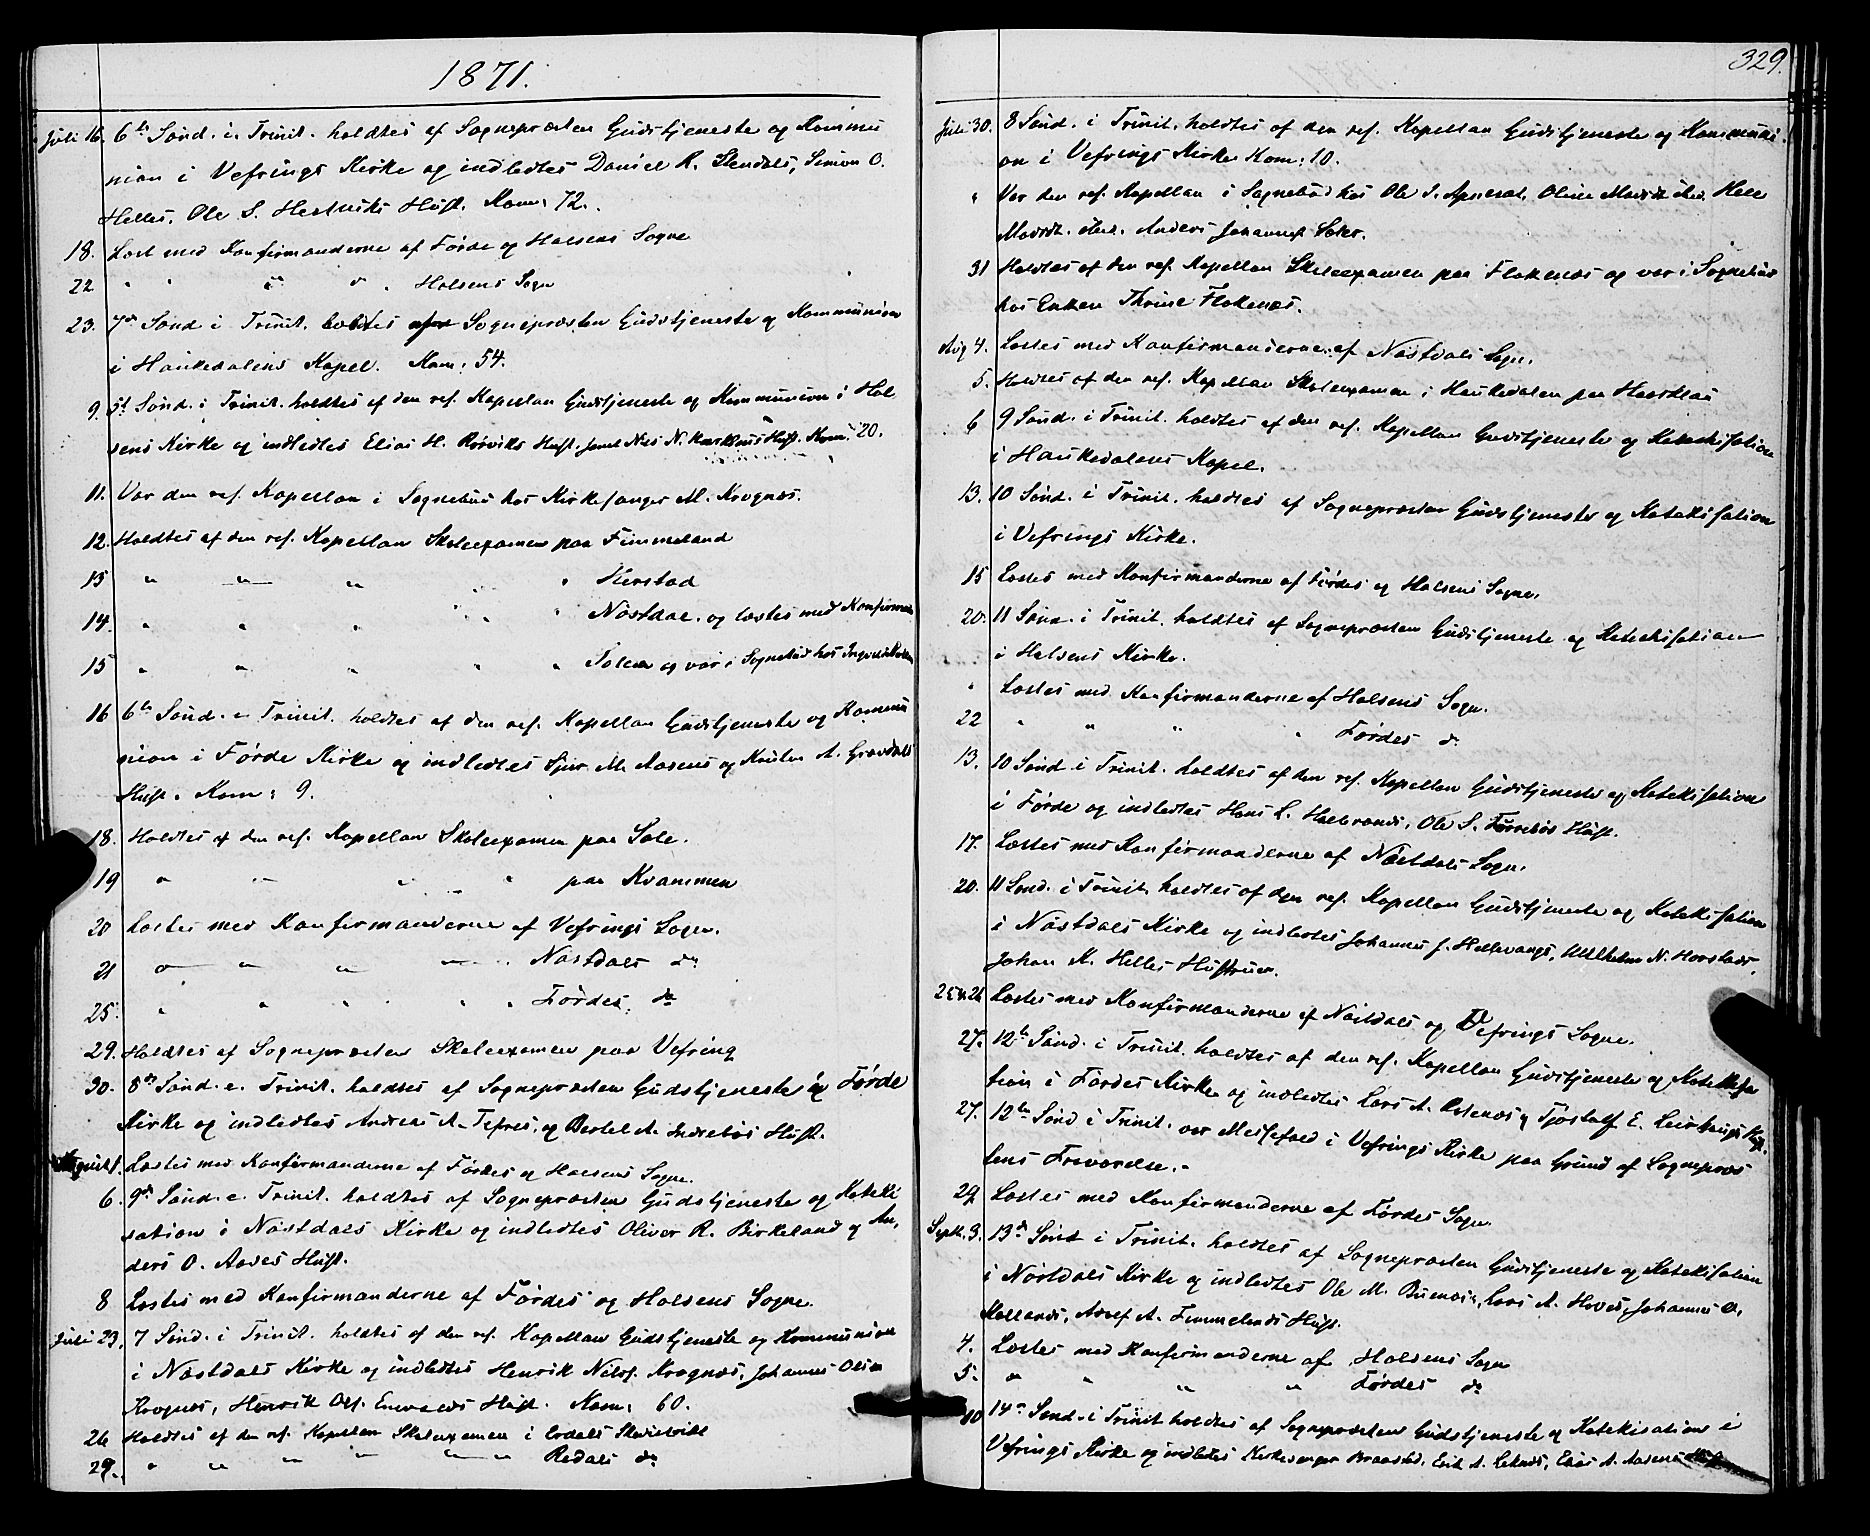 1871.
Juli 16. 6te Sønd. e. Trinit. holdtes af Sognepræsten Gudstjeneste og Kommu
nion i Vefrings Kirke og indledtes Daniel R. Stendals, Simon O.
Helles, Ole S. Hestviks Hust. Kom: 72.
18. Læst med Konfirmanderne af Førde og Holsens Sogne
22 " " " d " Holsens Sogn
23. 7de Sønd i Trinit. holdtes Sognepræsten Gudstjeneste og Kommunion
i Haukedalens Kapel. Kom: 54.
9. 5t Sønd. i Trinit. holdtes af den res. Kapellan Gudstjeneste og Kommunion i Hol
sens Kirke og indledtes Elias H. Rørviks Hust. samt Nils N. Hust. Kom: 20.
11. Var den res. Kapellan i Sognebud hos Kirkesanger M. Krognæs.
12. Holdtes af den res. Kapellan Skoleexamen paa Fimmeland
13 " " " " Kirstad
14. " " " " " Nøstdal. og læstes med Konfirman
15 " " " " " Solem og var i Sognebud hos
16 6te Sønd. e. Trinit. holdtes af den res. Kapellan Gudstjeneste og Kommu
nion i Førde Kirke og indledtes Sjur M. Aasens og A. Gravdals
Hust. Kom: 9.
18. Holdtes af den res. Kapellan Skoleexamen paa Sole.
19 " " " " " paa Kvammen
20 Læstes med Konfirmanderne af Vefrings Sogn.
21 " " " " Nøstdals do
25. " " " " " Førdes do
29. Holdtes af Sognepræsten Skoleexamen paa Vefring
30. 8de Sønd. e. Trinit. holdtes af Sognepræsten Gudstjeneste i Førde
Kirke og indledtes Andreas A. Tefres, og Bertel A. Indrebøs Hust.
August 1. Læstes med Konfirmanderne af Førdes og Holsens Sogne.
6. 9de Sønd. e. Trinit. holdtes af Sognepræsten Gudstjeneste og Kateki
sation i Nøstdals Kirke og indledtes Oliver R. Birkeland og An,
ders O. Aases Hust.
8 Læstes med Konfirmanderne af Førdes og Holsens Sogne.
Juli 23. 7 Sønd. i Trinit. holdtes af den res. Kapellan Gudstjeneste og Kommunion
i Nøstdals Kirke og indledtes Henrik Nils. Krognæs, Johannes Olsen
Krognæs, Henrik Ols. Hust. Kom: 60.
26 Holdtes af den res. Kapellan Skoleexamen i
29. " " " " " " Redals do
329.
Juli 30. 8 Sønd. i Trinit. holdtes af den res. Kapellan Gudstjeneste og Kommuni
on i Vefrings Kirke Kom: 10.
" Var den res. Kapellan i Sognebud hos Ole S.
Anders Johannes
31 Holdtes af den res. Kapellan Skoleexamen paa Flokenæs og var i Sognebud
hos Enken Thrine Flokenæs.
Aug 4. Læstes med Konfirmanderne af Nøstdals Sogn.
5. Holdtes af den res. Kapellan Skoleexamen i Haukedalen paa
6 9 Sønd. i Trinit. holdtes af den res. Kapellan Gudstjeneste og Katekisation
i Haukedalens Kapel.
13. 10 Sønd. i Trinit. holdtes af Sognepræsten Gudstjeneste og Katekisation
i Vefrings Kirke.
15 Læstes med Konfirmanderne af Førdes og Holsens Sogne.
20. 11 Sønd. i Trinit. holdtes af Sognepræsten Gudstjeneste og Katekisation
i Holsens Kirke.
" Læstes med Konfirmanderne af Holsens Sogn.
22 " " " " Førdes do
13. 10 Sønd i Trinit. holdtes af den res. Kapellan Gudstjeneste og Katekisation
i Førde og indledtes Hans L. Halbrands, Ole S. Hust.
17. Læstes med Konfirmanderne af Nøstdals Sogn.
20. 11 Sønd. i Trinit. holdtes af den res. Kapellan Gudstjeneste og Katekisation
i Nøstdals Kirke og indledtes Johannes J. Hellevangs, N. Horstads,
Johan K. Helles Hustruer.
25 & 26 Læstes med Konfirmanderne af Nøstdals og Vefrings Sogne.
27. 12te Sønd. i Trinit. holdtes af den res. Kapellan Gudstjeneste og Katekisa
tion i Førdes Kirke og indledtes Lars A. og Tjøstolf E. Hust.
27. 12te Sønd i Trinit. var Messefald i Vefrings Kirke paa Grund af Sognepræs
tens Fraværelse.
29 Læstes med Konfirmanderne af Førdes Sogn
Sept. 3. 13de Sønd i Trinit. holdtes af Sognepræsten Gudstjeneste og Katekisation
i Nøstdals Kirke og indledtes Ole M. Lars A. Hoves, Johannes O.
A. Fimmelands Hust.
4. Læstes med Konfirmanderne af Holsens Sogn
5. " " " " Førdes do
10 14de Sønd. i Trinit holdtes af Sognepræsten Gudstjeneste og Katekisation i
Vefrings Kirke og indledtes Kirkesanger Erik A. A. Aasens